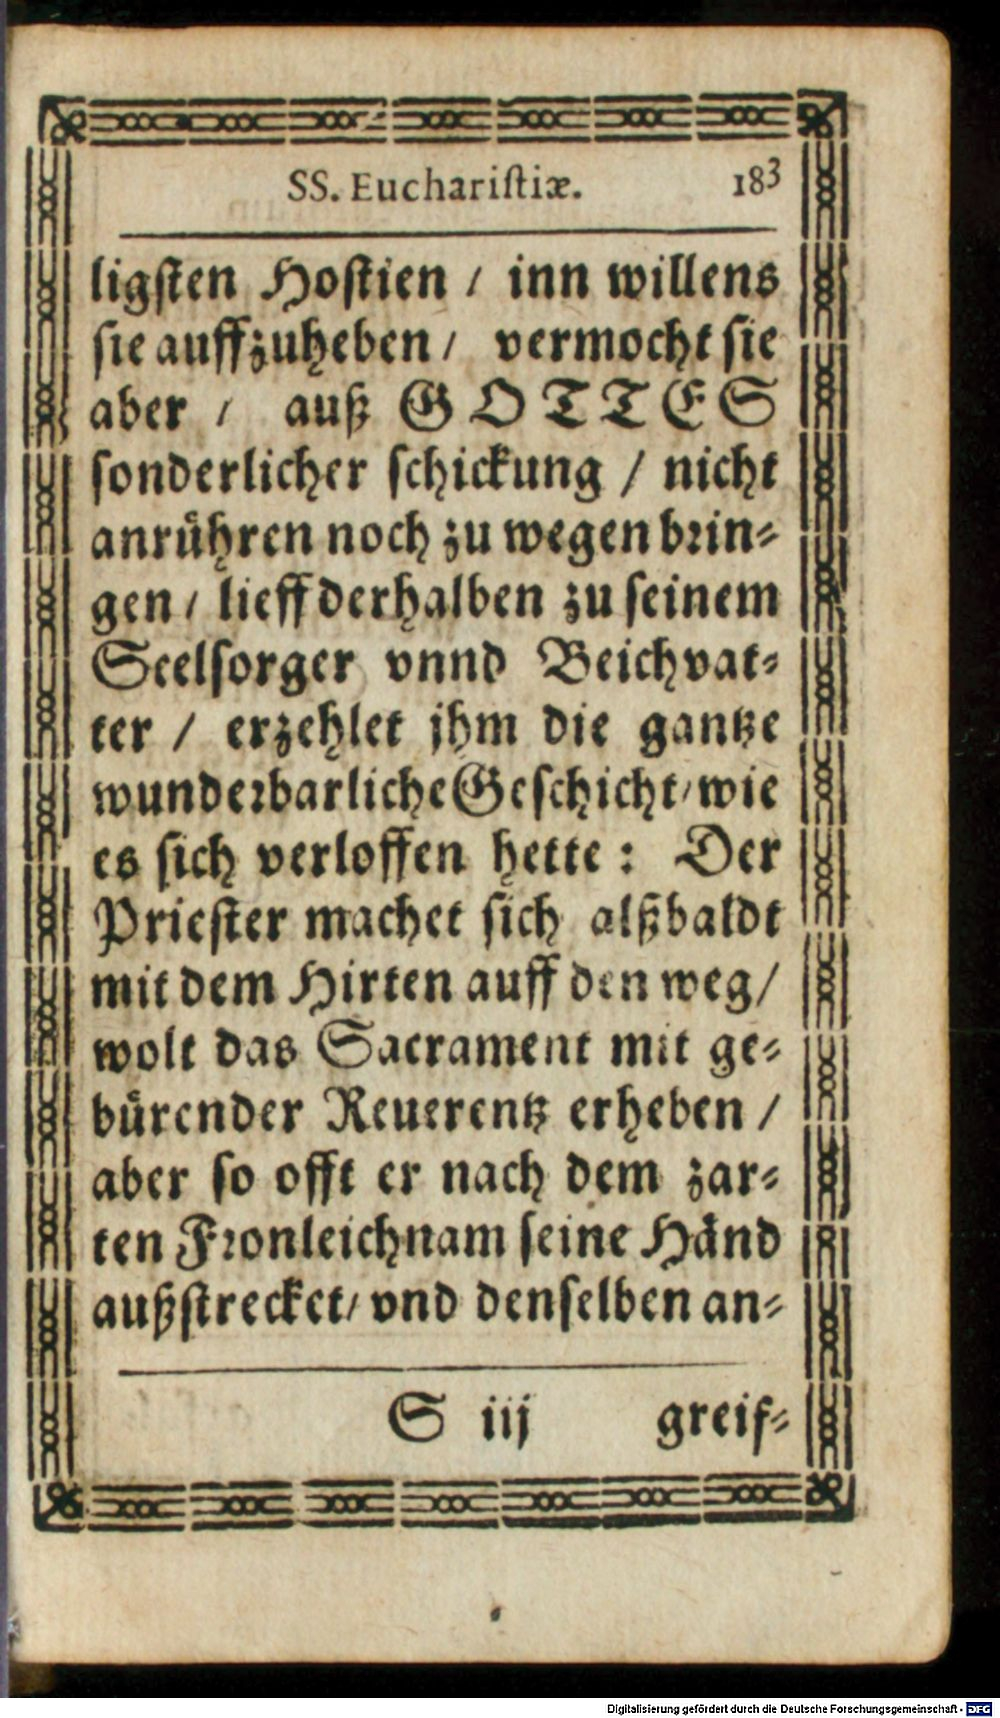 SS. Euchariſtiæ. 183
ligſten Hoſtien / inn willens
ſie auffzuheben / vermocht ſie
aber / auß GOTTES
ſonderlicher ſchickung / nicht
anrühren noch zu wegen brin⸗
gen / lieff derhalben zu ſeinem
Seelſorger vnnd Beichvat⸗
ter / erzehlet jhm die gantze
wunderbarliche Geſchicht / wie
es ſich verloffen hette : Der
Prieſter machet ſich alßbaldt
mit dem Hirten auff den weg /
wolt das Sacrament mit ge⸗
bürender Reuerentz erheben /
aber ſo offt er nach dem zar⸗
ten Fronleichnam ſeine Händ
außſtrecket / vnd denſelben an⸗
S iij greif⸗
Digitalisierung gefördert durch die Deutsche Forschungsgemeinschaft - DFG